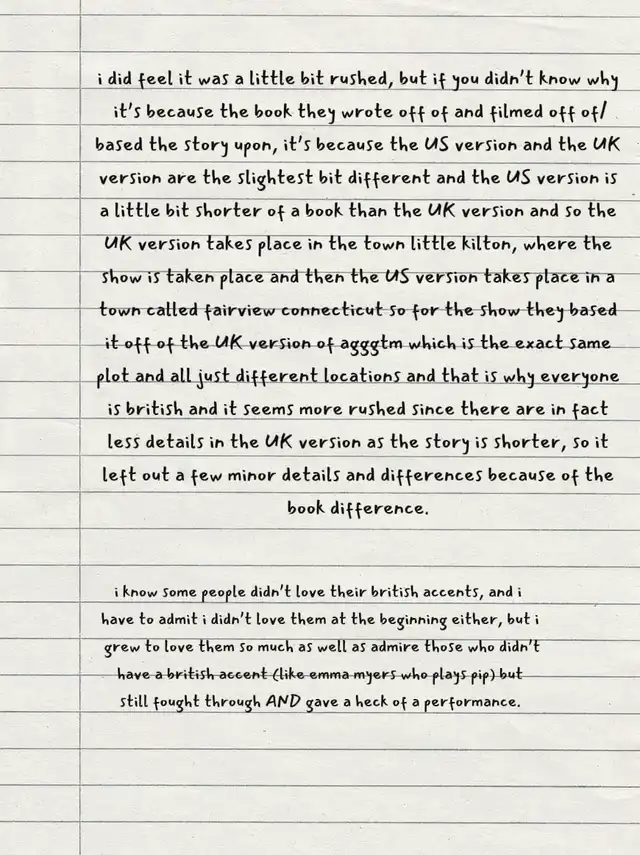 i did feel it was a little bit rushed, but if you didn't know why
it's because the book they wrote off of and filmed off of/
based the story upon, it's because the US version and the UK
version are the slightest bit different and the US version is
a little bit shorter of a book than the UK version and so the
UK version takes place in the town little kilton, where the
show is taken place and then the US version takes place in a
town called fairview connecticut so for the show they based
it off of the UK version of agggtm which is the exact same
plot and all just different locations and that is why everyone
is british and it seems more rushed since there are in fact
less details in the UK version as the story is shorter, so it
left out a few minor details and differences because of the
book difference.
i know some people didn't love their british accents, and i
have to admit i didn't love them at the beginning either, but i
grew to love them so much as well as admire those who didn't
have a british accent (like emma myers who plays pip) but
still fought through AND gave a heck of a performance.